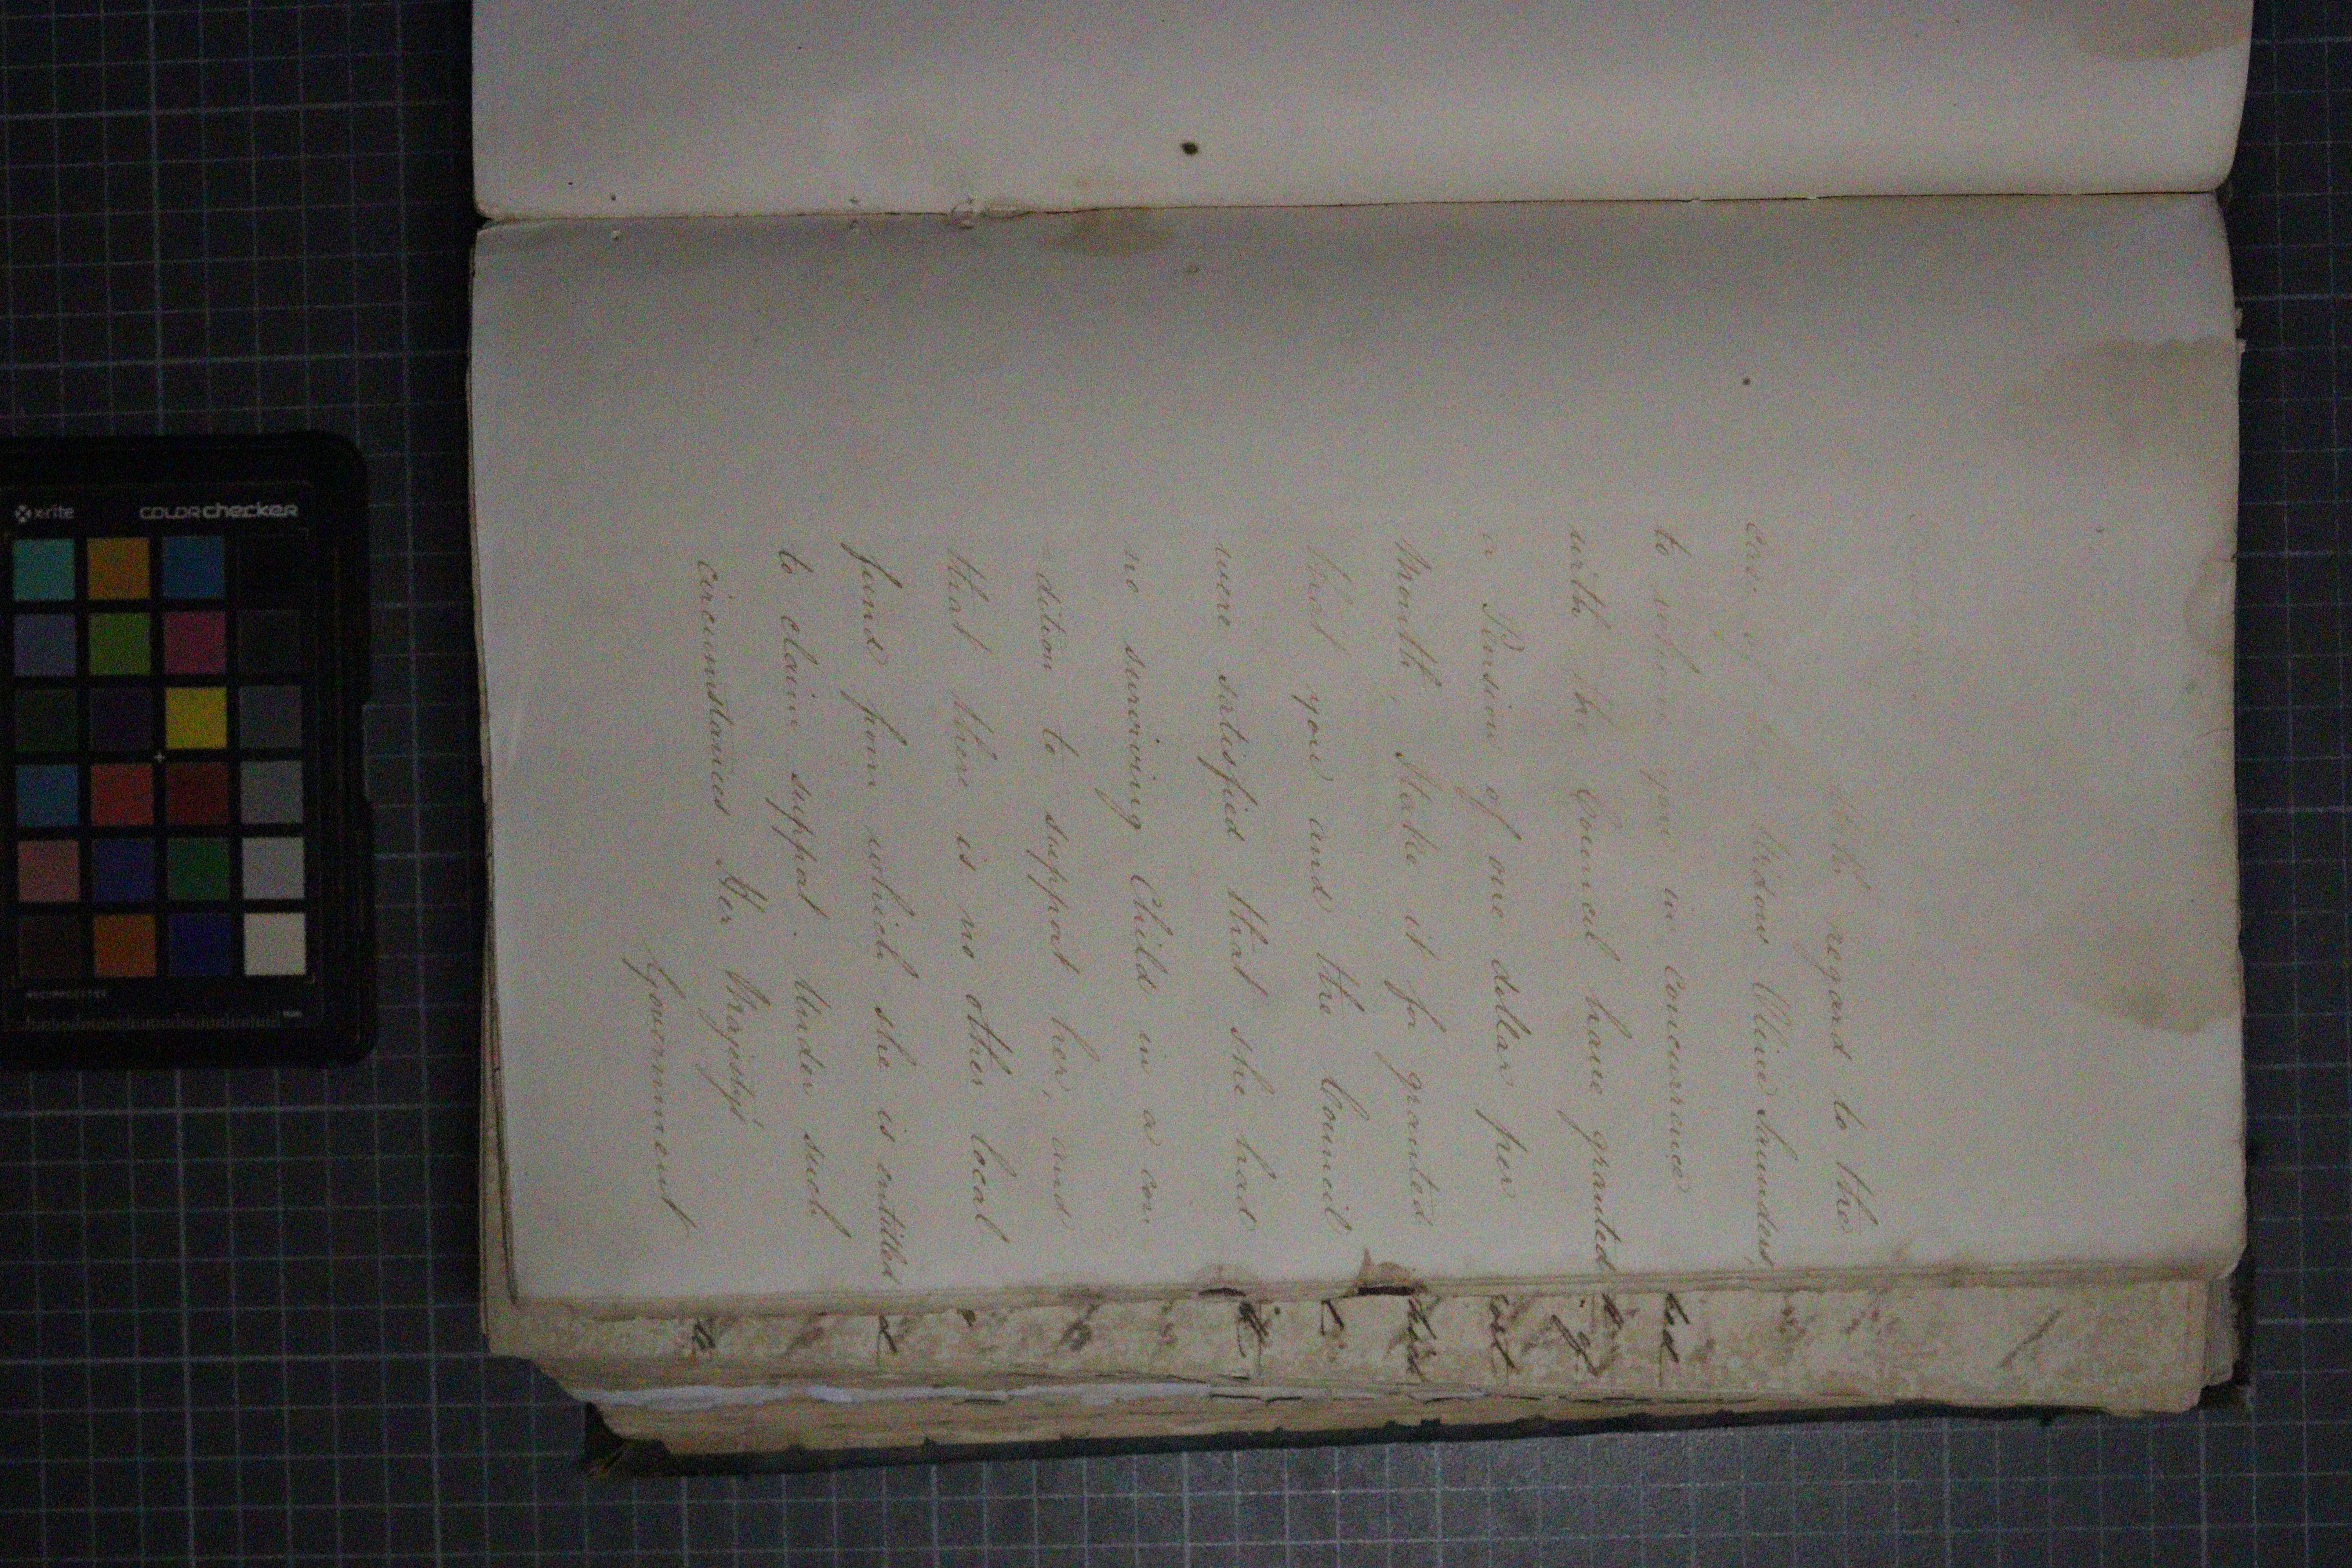 With regard to the
case of the Widow Olive Saunders,
to whom you in concurrence
with the Council have granted
a Pension of one dollar per
Month, I take it for granted
that you and the Council
were satisfied that she had
no surviving Child in a con
-dition to support her, and
that there is no other local
fund from which she is entitled
to claim support. Under such
circumstances Her Majesty's
Government
x-rite
COLORchecker